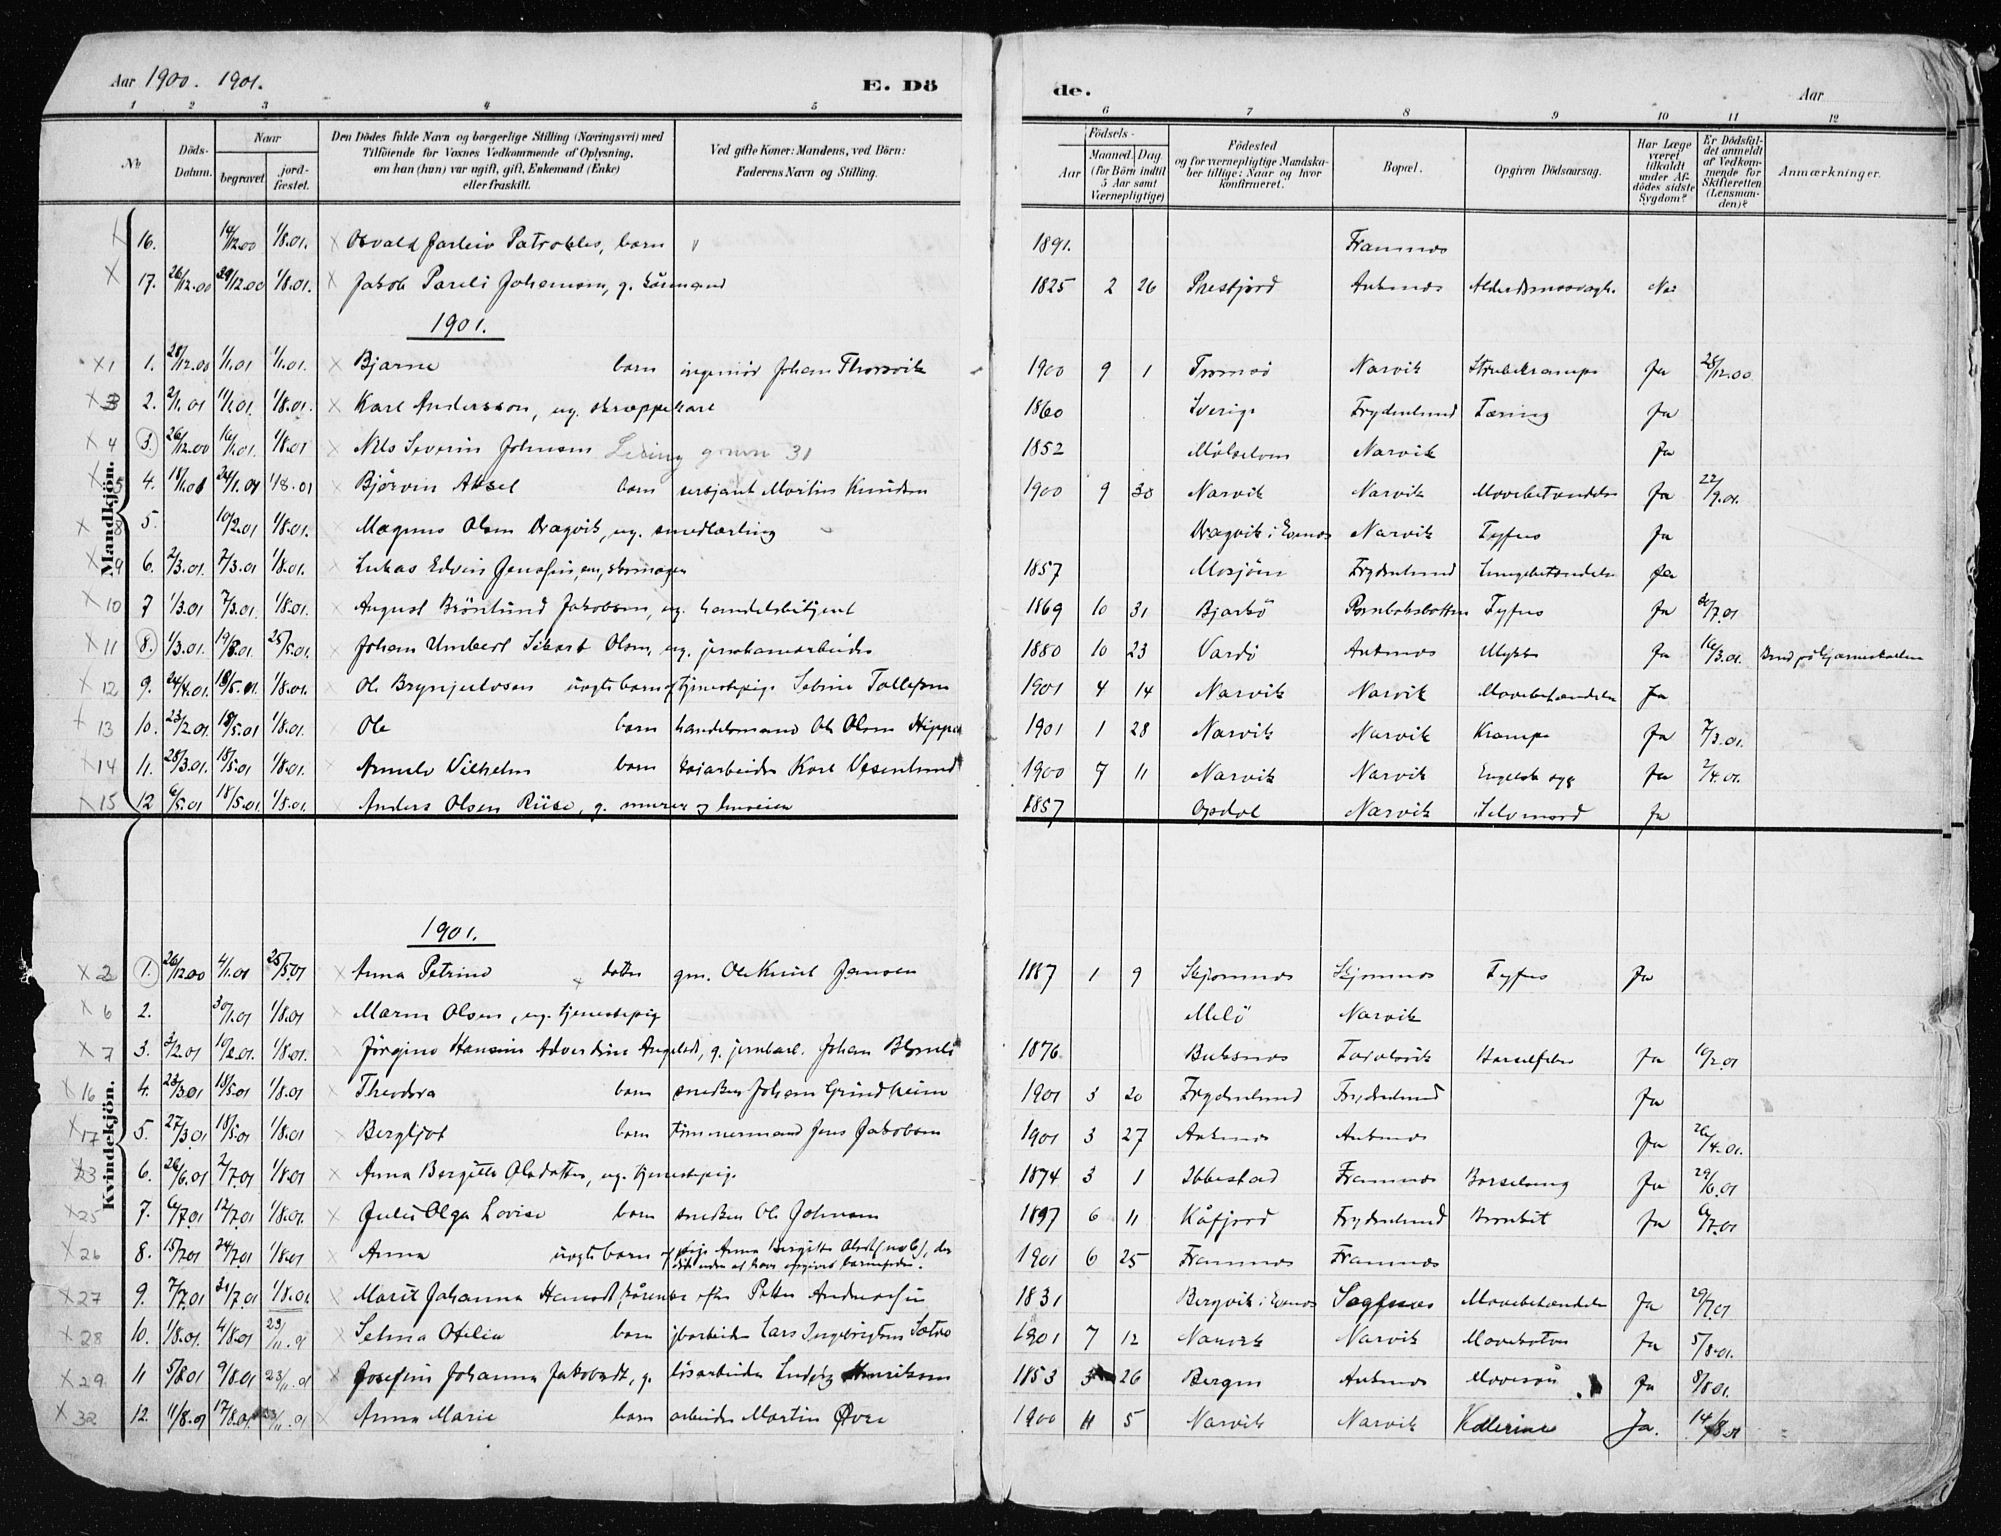 Aar 1900. 1901. E. Dö de. Aar
1 2 3 4 5 6 7 8 9 10 11 12
No Döds-Datum. Naar begravet. jord-fæstet. Den Dödes fulde Navn og borgerlige Stilling (Næringsvei) med Tilföiende for Voxnes Vedkommende af Oplysning, om han (hun) var ugift, gift, Enkemand (Enke) eller fraskilt. Ved gifte Koner: Mandens, ved Börn: Faderens Navn og Stilling. Födsels- Aar Maaned. Dag. (for Börn indtil 5 Aar samt Værnepligtige) Födested og for værnepligtige Mandska-ber tillige: Naar og hvor konfirmeret. Bopæl. Opgiven Dödsaarsag. Har Læge været tilkaldt under Af-dödes sidste Sygdom? Er Dödsfal-det anmeldt af Vedkom-mende for Skifteretten (Lensman-den)? Anmærkninger.
16. 14/12.00 1/8.01. Osvald Patroklus, barn 1891. Framnes
17. 26/12.00 29/12.00 1/8.01. Jakob Pareli Johansen, g. 1825 2 26 Ankenes Nei
1901.
Mandkjön.
1 1. 28/12.00 1/1.01 1/1.01. Bjarne barn ingeniør Johan Thorsvik 1900 9 1 Tromsö Narvik Strubekrampe Ja 28/12.00
3 2. 2/1.01 11/1.01 1/8.01. Karl Andersson, ug. skræppekarl 1860 Sverige Frydenlund Tæring Ja
4 3. 26/12.00 16/1.01 1/8.01 Nils Severin Johnsen 31 1852 Målselven Narvik Ja
5 4. 18/1.01 24/1.01 1/8.01 Bjørvin Aksel barn sersjant Martin Knudsen 1900 9 30 Narvik Narvik Mavebetændelse Ja 22/9.01.
8 5. 10/2.01 1/8.01. Magnus Olsen Dragvik, ug. smedlærling Dragvik i Evenes Narvik Tyfus Ja
9 6. 2/3.01. 7/3.01 1/8.01. Lukas Edvin 1857 Mosjøen Frydenlund Lungebetændelse Ja
10 7 1/3.01 7/3.01. 1/8.01. August Brönlund Jakobsen, ug. handelsbetjent 1869 10 31 Bjarkö Tyfus Ja
11 8. 1/3.01. 25/5.01. Johan Umbert Olsen, ug. jernbanearbeider 1880 10 23 Vardö Ankenes Ja 16/3.01.
12 9. 24/4.01. 18/5.01. 1/8.01. Ole Brynjulvsen uægte barn af tjenestepige Sebine Tollefsen 1901 4 14 Narvik Narvik Mavebetændelse Ja
13 10. 23/2.01. 18/5.01 1/8.01. Ole barn handelsmand Ole Olsen 1901 1 28 Narvik Narvik Krampe Ja 7/3.01.
14 11. 28/3.01. 18/5.01 1/8.01. Vilhelm barn Karl Vesenlund 1900 7 11 Narvik Narvik Engelsk syge Ja 2/4.01.
15 12 6/5.01 18/5.01. 1/8.01. Anders Olsen Riise, g. murer 1857 Opdal Narvik Selvmord Ja
1901.
Kvindekjön.
2 1. 26/12.00 4/1.01 25/5.01 Anna Petrine datter gm. Ole Knut Jansen 1887 1 9 Skjomnes Skjomnes Tyfus Ja
6 2. 30/1.01 1/8.01 Maren Olsen, ug. tjenestepige Melö Narvik
7 3. 3/2.01 10/2.01. 1/8.01. Jörgine Hansine g. jernbarb. Johan 1876. Buksnes Barselfeber Ja 10/2.01
16 4. 23/3.01 18/5.01 1/8.01 Theodora barn snedker Johan Grindheim 1901 3 20 Frydenlund Frydenlund Ja
17 5. 27/3.01 18/5.01 1/8.01 Bergljot barn Tömmermand Jens Jakobsen 1901 3 27 Ankenes Ankenes Ja 26/4.01.
23 6. 26/6.01 2/7.01 1/8.01 Anna Bergitte Olsdatter, ug. tjenestepige 1874 3 1 Ibbestad Framnes Barselseng Ja 29/6.01
25 7. 6/7.01 12/7.01 1/8.01. Julie Olga Lovise barn snedker Ole Johnsen 1897 6 11 Kåfjord Frydenlund Ja 6/7.01
26 8. 15/7.01 24/7.01 1/8.01 Anna uægte barn af pige Anna Bergitte Olsdt (no 6), der döde uden at have opgivet barnefader. 1901 6 25 Framnes Framnes
27 9. 7/7.01 31/7.01 1/8.01 Marit Johanna Hansdt, efter Petter Andreassen 1831 Bergvik i Evenes Mavebetændelse Ja 29/7.01
28 10. 1/8.01. 4/8.01 23/11.01 Selma Otilie barn Lars Ingebrigtsen 1901 7 12 Narvik Narvik Ja 5/8.01.
29 11 5/8.01 9/8.01 23/11.01 Josefine Johanna Jakobsdt, g. lösarbeider Ludvig Henriksen 1853 26 Bergen Ankenes Ja 8/8.01.
32 12. 11/8.01 17/8.01 23/11.01 Anna Marie barn arbeider Martin Øvre 1900 11 5 Narvik Narvik Kollerine Ja. 14/8.01